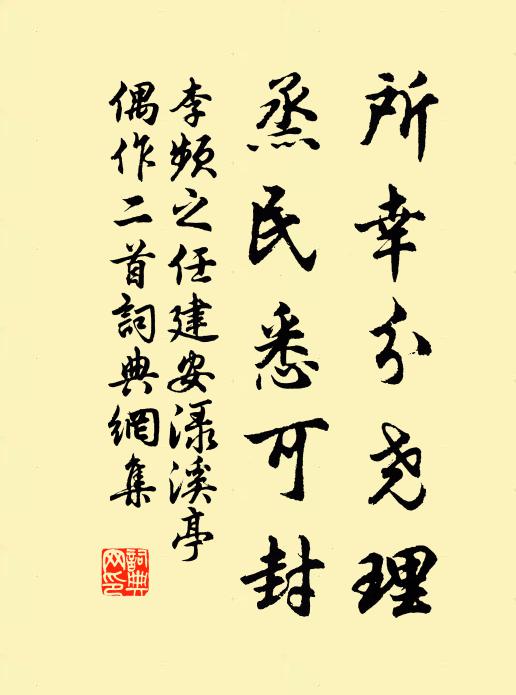 所幸分尧理
烝民悉可封
李频之任建安渌溪亭
偶作二首詞典網集
詞典网印